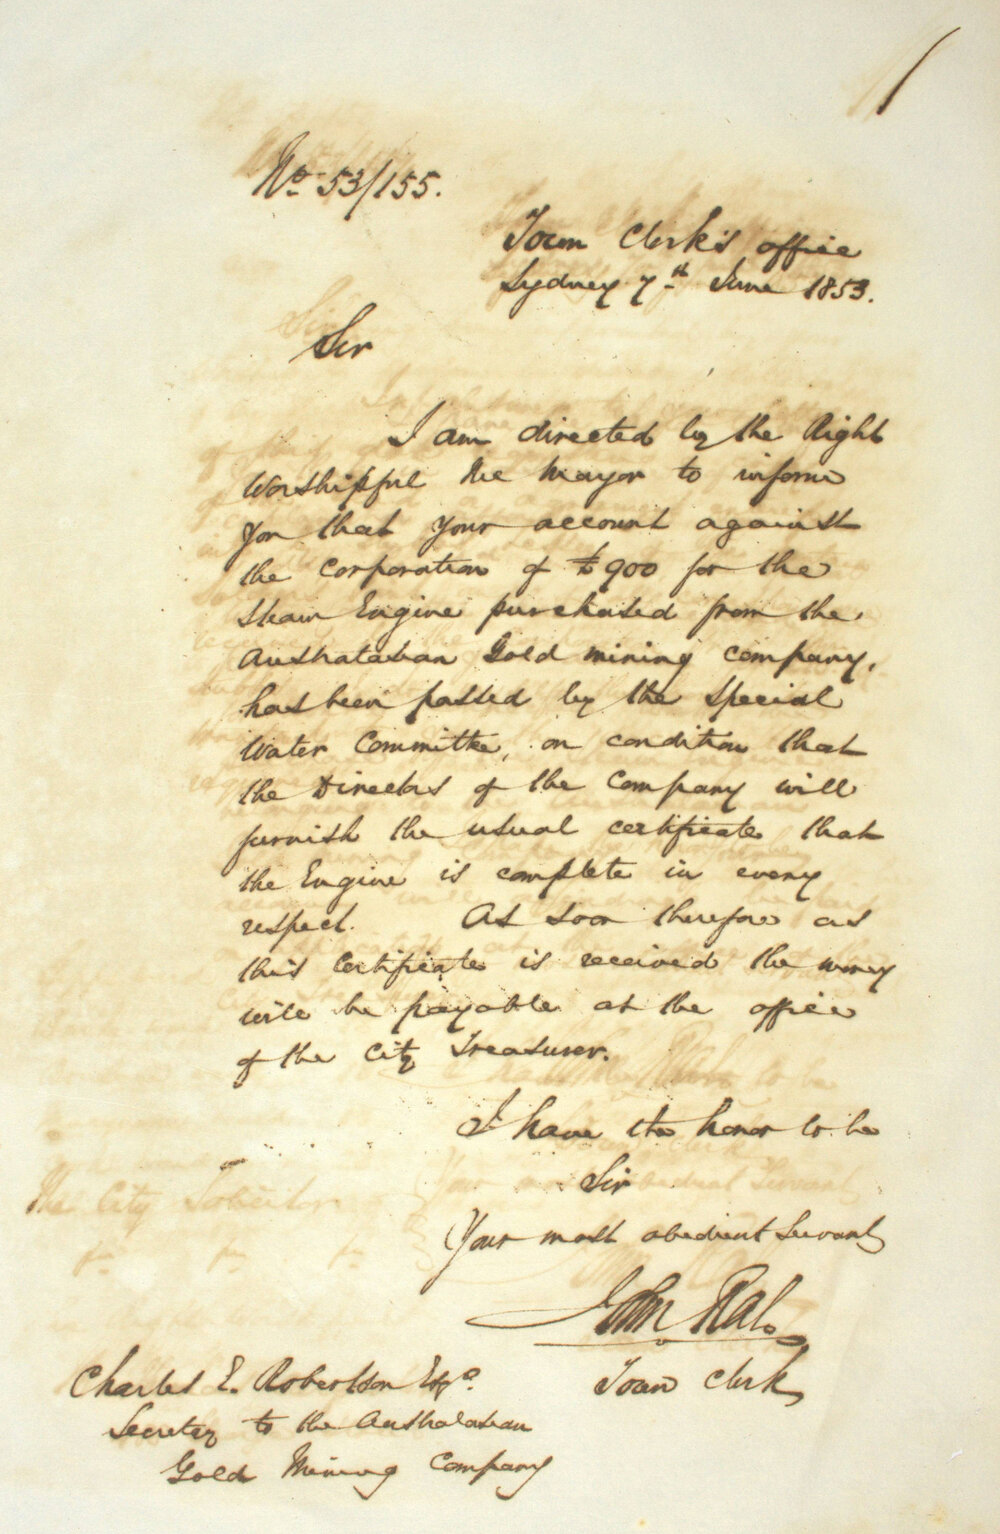 No 53/155.
Town Clerk's office
Sydney 7th June 1853.
Sir
I am directed by the Right
Worshipful the Mayor to inform
you that your account against
the Corporation of £900 for the
Steam Engine purchased from the
Australasian Gold mining company,
has been passed by the Special
Water Committee, on condition that
the Directors of the Company will
furnish the usual certificate that
the Engine is complete in every
respect. As soon therefore as
this Certificate is received the money
will be payable at the office
of the City Treasurer.
I have the honor to be
Sir
Your most obedient Servant
John Rae
Town Clerk
Charles E. Robertson Esqe.
Secretary to the Australasian
Gold Mining Company
The City Solicitor